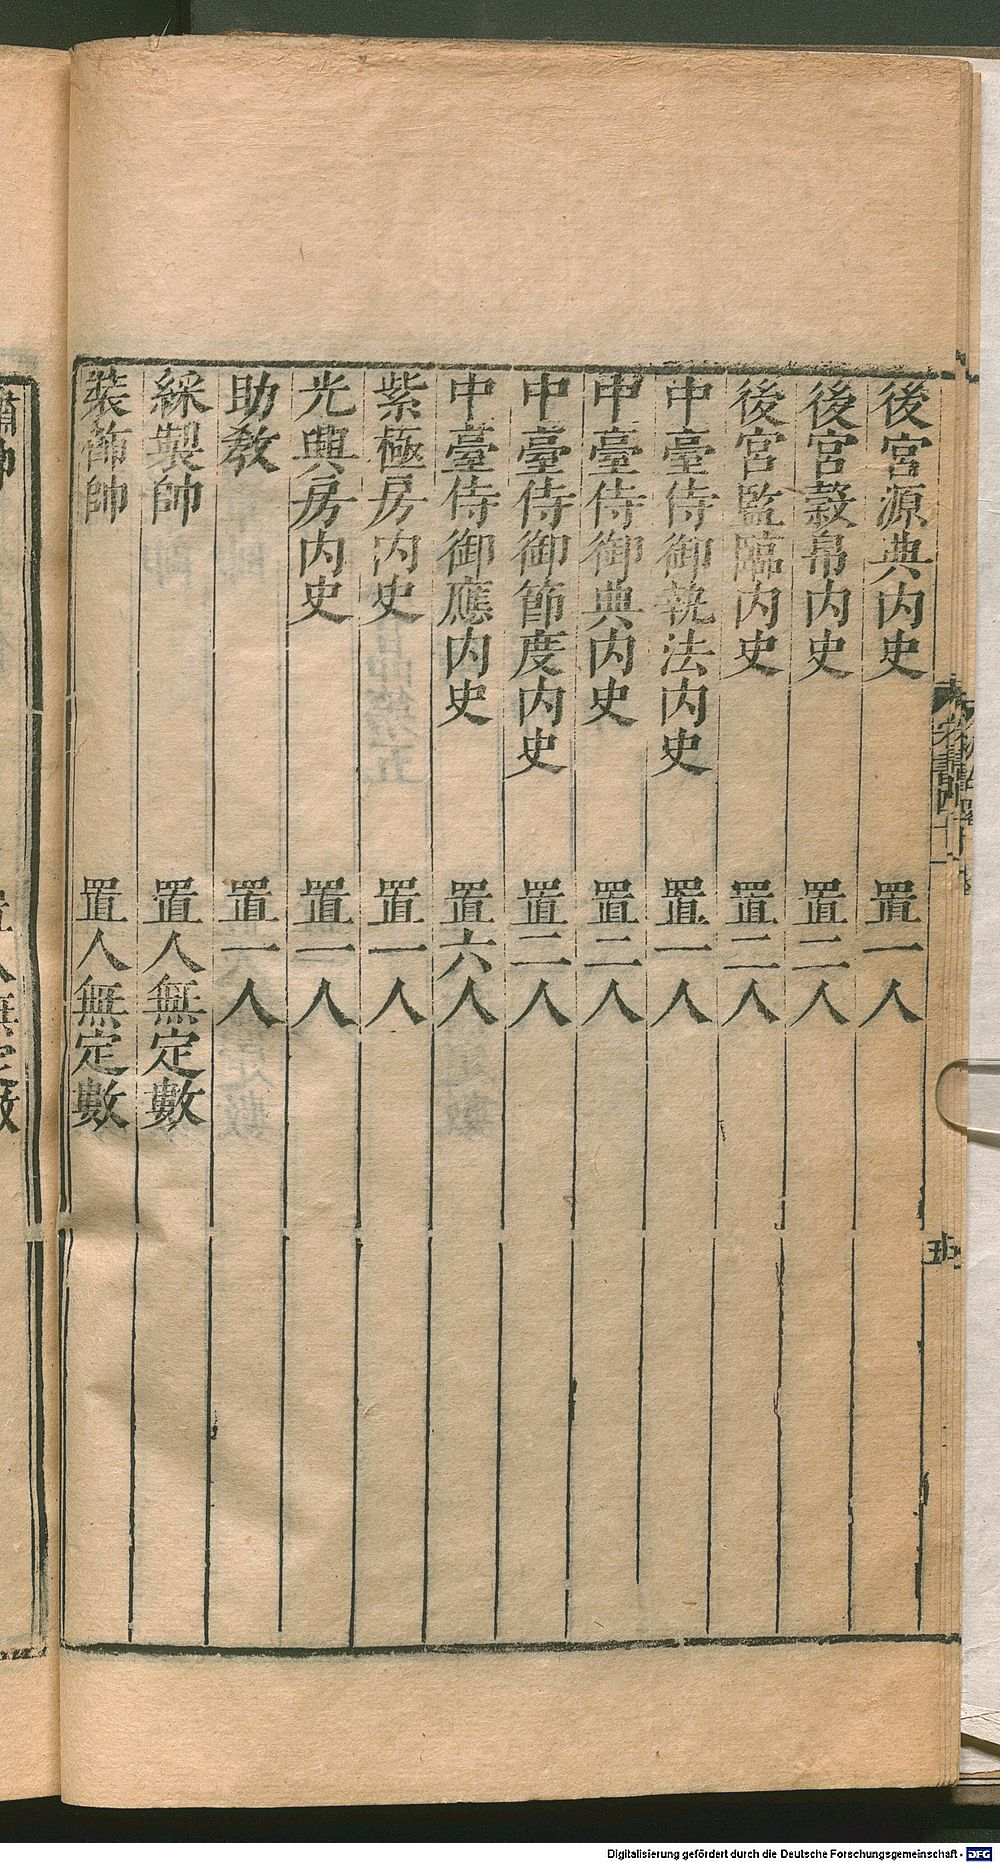 後宮源典内史 置一人
後宮穀帛内史 置二人
後宮監臨内史 置二人
中臺侍御執法内史 置一人
中臺侍御典内史 置二人
中臺侍御節度内史 置二人
中臺侍御應内史 置六人
紫極房内史 置一人
光興房内史 置一人
助教 置一人
綵製帥 置人無定數
装飾帥 置人無定數
Digitalisierung gefördert durch die Deutsche Forschungsgemeinschaft - DFG